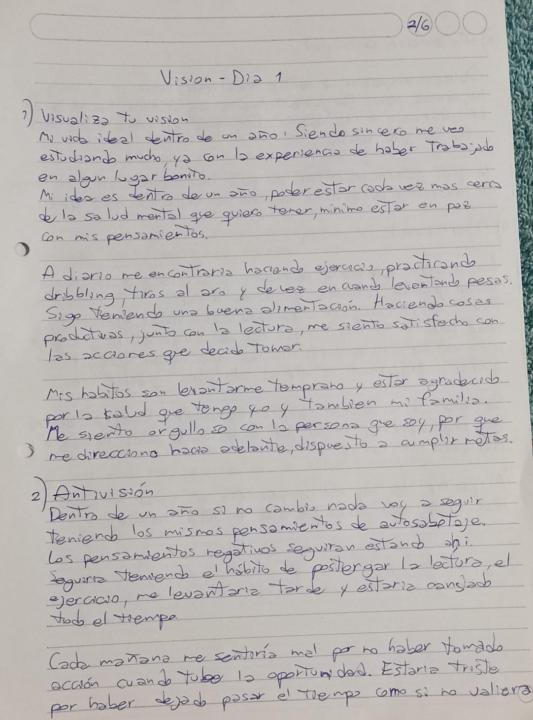 2/6
Vision - Dia 1
1) Visualiza tu vision
Mi vida ideal dentro de un año. Siendo sincero me veo
estudiando mucho, ya con la experiencia de haber Trabajado
en algun lugar bonito.
Mi idea es dentro de un año, poder estar cada vez mas cerca
de la salud mental que quiero tener, minimo estar en paz
con mis pensamientos.
A diario me encontraria haciendo ejercicio, practicando
dribbling, tiros al aro y de vez en cuando levantando pesas.
Sigo teniendo una buena alimentación. Haciendo cosas
productivas, junto con la lectura, me siento satisfecho con
las acciones que decido tomar.
Mis habitos son levantarme temprano y estar agradecido
por la salud que tengo yo y tambien mi familia.
Me siento orgulloso con la persona que soy, por que
me direcciono hacia adelante, dispuesto a cumplir metas.
2) Antivisión
Dentro de un año si no cambio nada voy a seguir
teniendo los mismos pensamientos de autosabotaje.
Los pensamientos negativos seguiran estando ahi.
Seguiria teniendo el hábito de postergar la lectura, el
ejercicio, me levantaria tarde y estaria cansado
todo el tiempo
Cada mañana me sentiría mal por no haber tomado
acción cuando tube la oportunidad. Estaria triste
por haber dejado pasar el tiempo como si no valiera